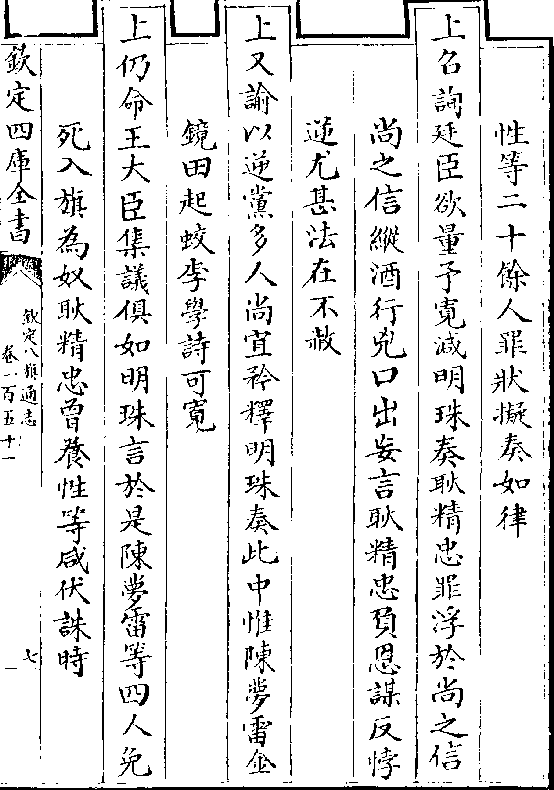 性等二十餘人罪狀擬奏如律
上召詢廷臣欲量予寛減明珠奏耿精忠罪浮於尚之信
尚之信縱酒行兇口出妄言耿精忠負恩謀反悖
逆尤甚法在不赦
上又諭以逆黨多人尚宜矜釋明珠奏此中惟陳夢雷金
鏡田起蛟李學詩可寛
上仍命王大臣集議俱如明珠言於是陳夢雷等四人免
死入旗為奴耿精忠曾養性等咸伏誅時
欽定四庫全書
欽定八旗通志
卷一百五十一
七